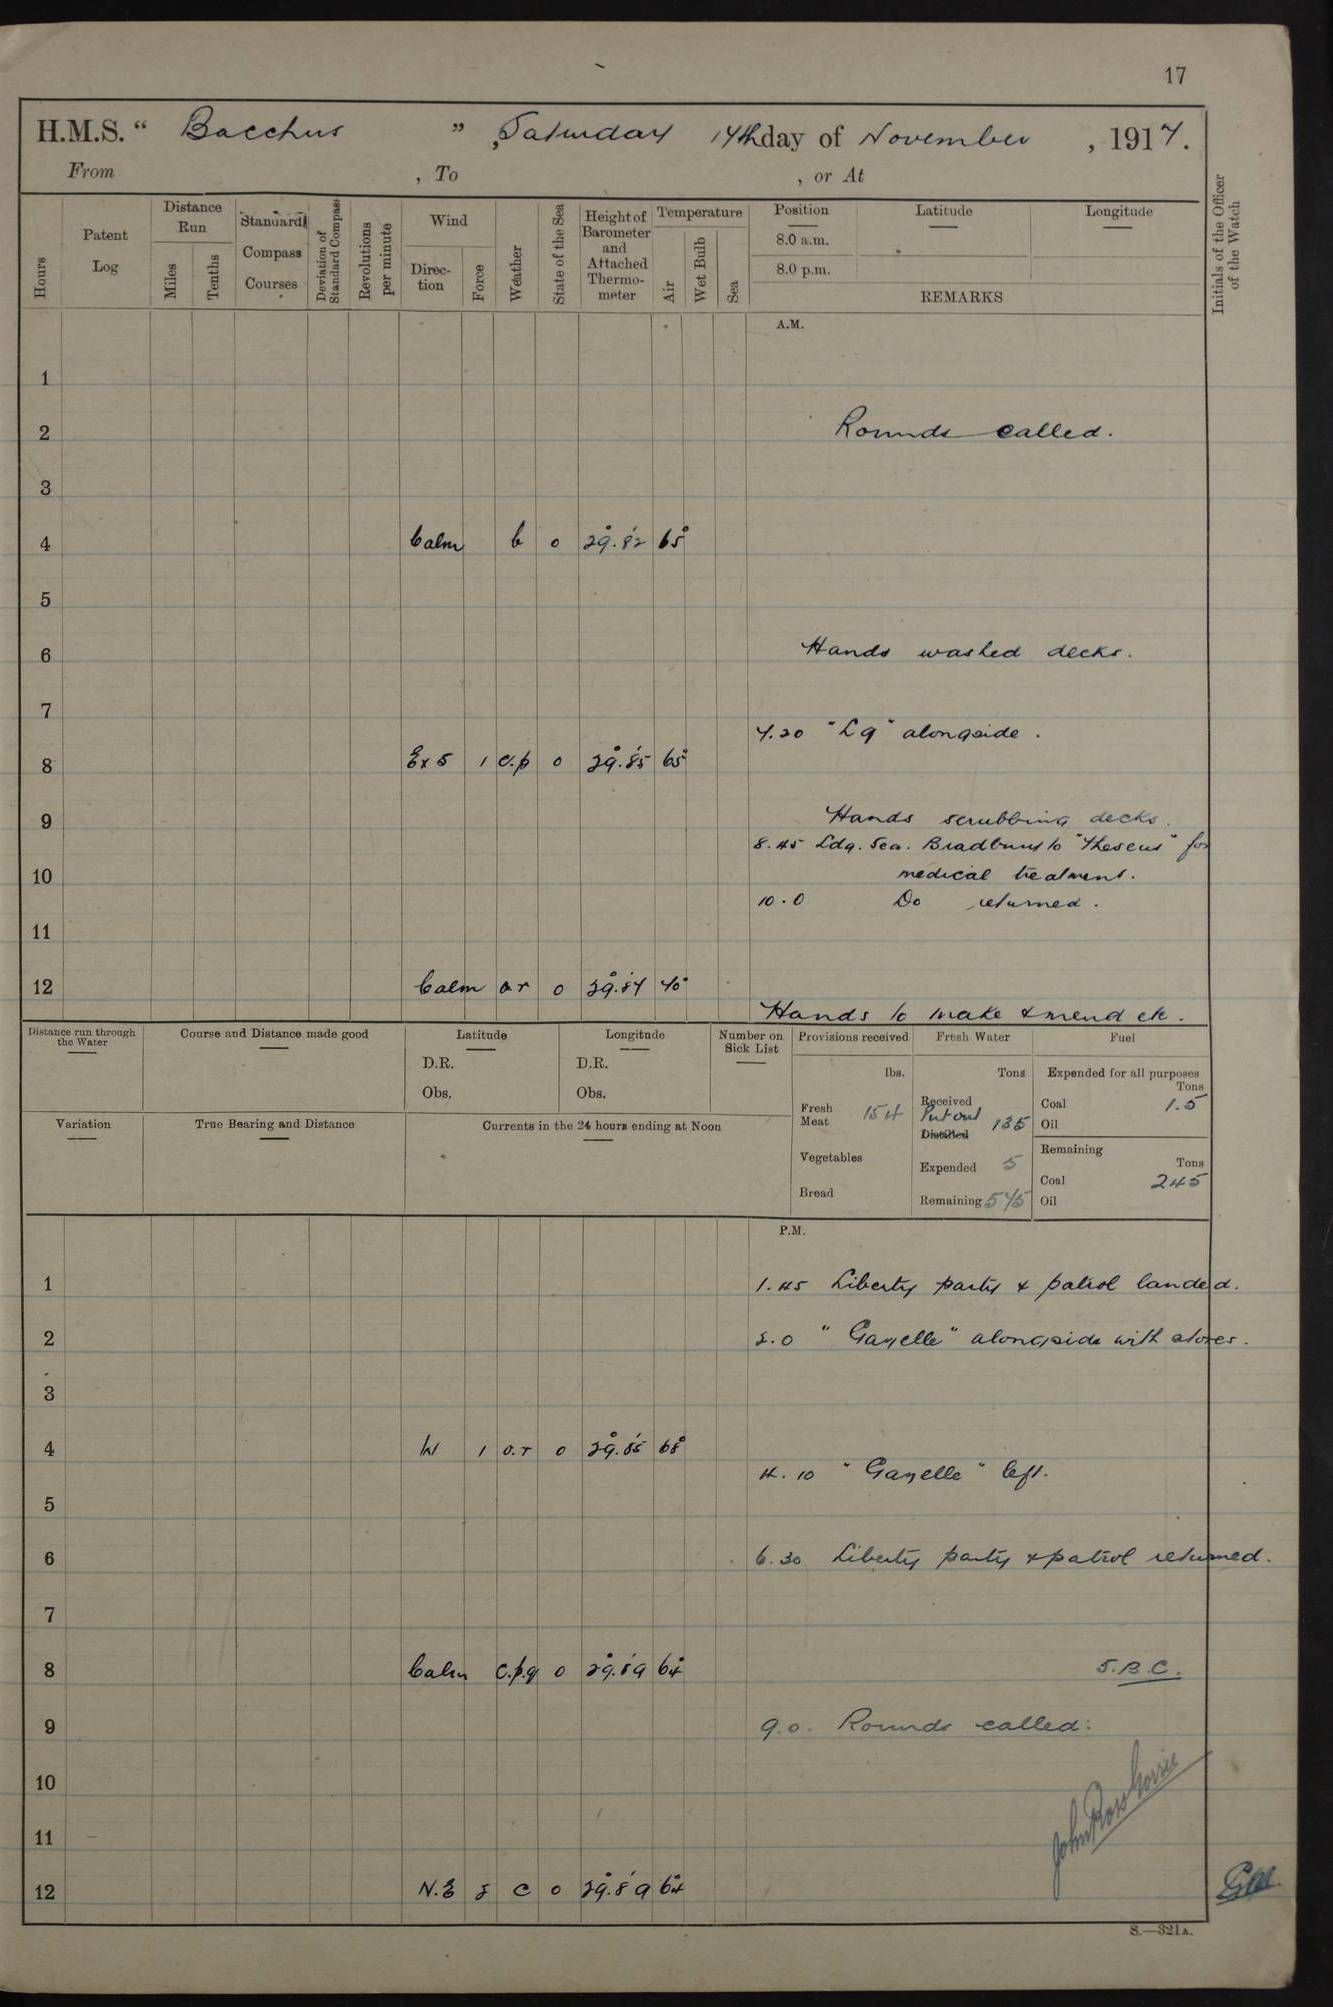 17
H.M.S. " Bacchus ", Saturday 17th day of November, 1917.
From , To , or At
Hours
Patent Log
Distance Run
Miles
Tenths
Standard Compass Courses
Deviation of Standard Compass
Revolutions per minute
Wind
Direction
Force
Weather
State of the Sea
Height of Barometer and Attached Thermometer
Temperature
Air
Wet Bulb
Sea
Position
8.0 a.m.
8.0 p.m.
Latitude
Longitude
REMARKS
Initials of the Officer of the Watch
A.M.
1
2 Rounds called.
3
4 Calm b 0 29.82 65°
5
6 Hands washed decks.
7
7.20 "L9" alongside.
8 ExS 1 c.p 0 29.85 65°
9 Hands scrubbing decks.
8.45 Ldg. Sea. Bradbury to "Theseus" for
10 medical treatment.
10.0 Do returned.
11
12 Calm o.r 0 29.87 70°
Hands to make & mend etc.
Distance run through the Water
Course and Distance made good
Latitude
D.R.
Obs.
Longitude
D.R.
Obs.
Number on Sick List
Provisions received
lbs.
Fresh Meat 154
Vegetables
Bread
Fresh Water
Tons
Received
Put out 135
Distilled
Expended 5
Remaining 575
Fuel
Expended for all purposes
Tons
Coal 1.5
Oil
Remaining
Tons
Coal 245
Oil
Variation
True Bearing and Distance
Currents in the 24 hours ending at Noon
P.M.
1 1.45 Liberty party & patrol landed.
2 2.0 "Gazelle" alongside with stores.
3
4 W 1 o.r 0 29.85 68°
4.10 "Gazelle" left.
5
6 6.30 Liberty party & patrol returned.
7
8 Calm c.p.q 0 29.89 64° S.B.C.
9 9.0. Rounds called.
10
11
12 N.E 2 c 0 29.89 64°
S.—321A.